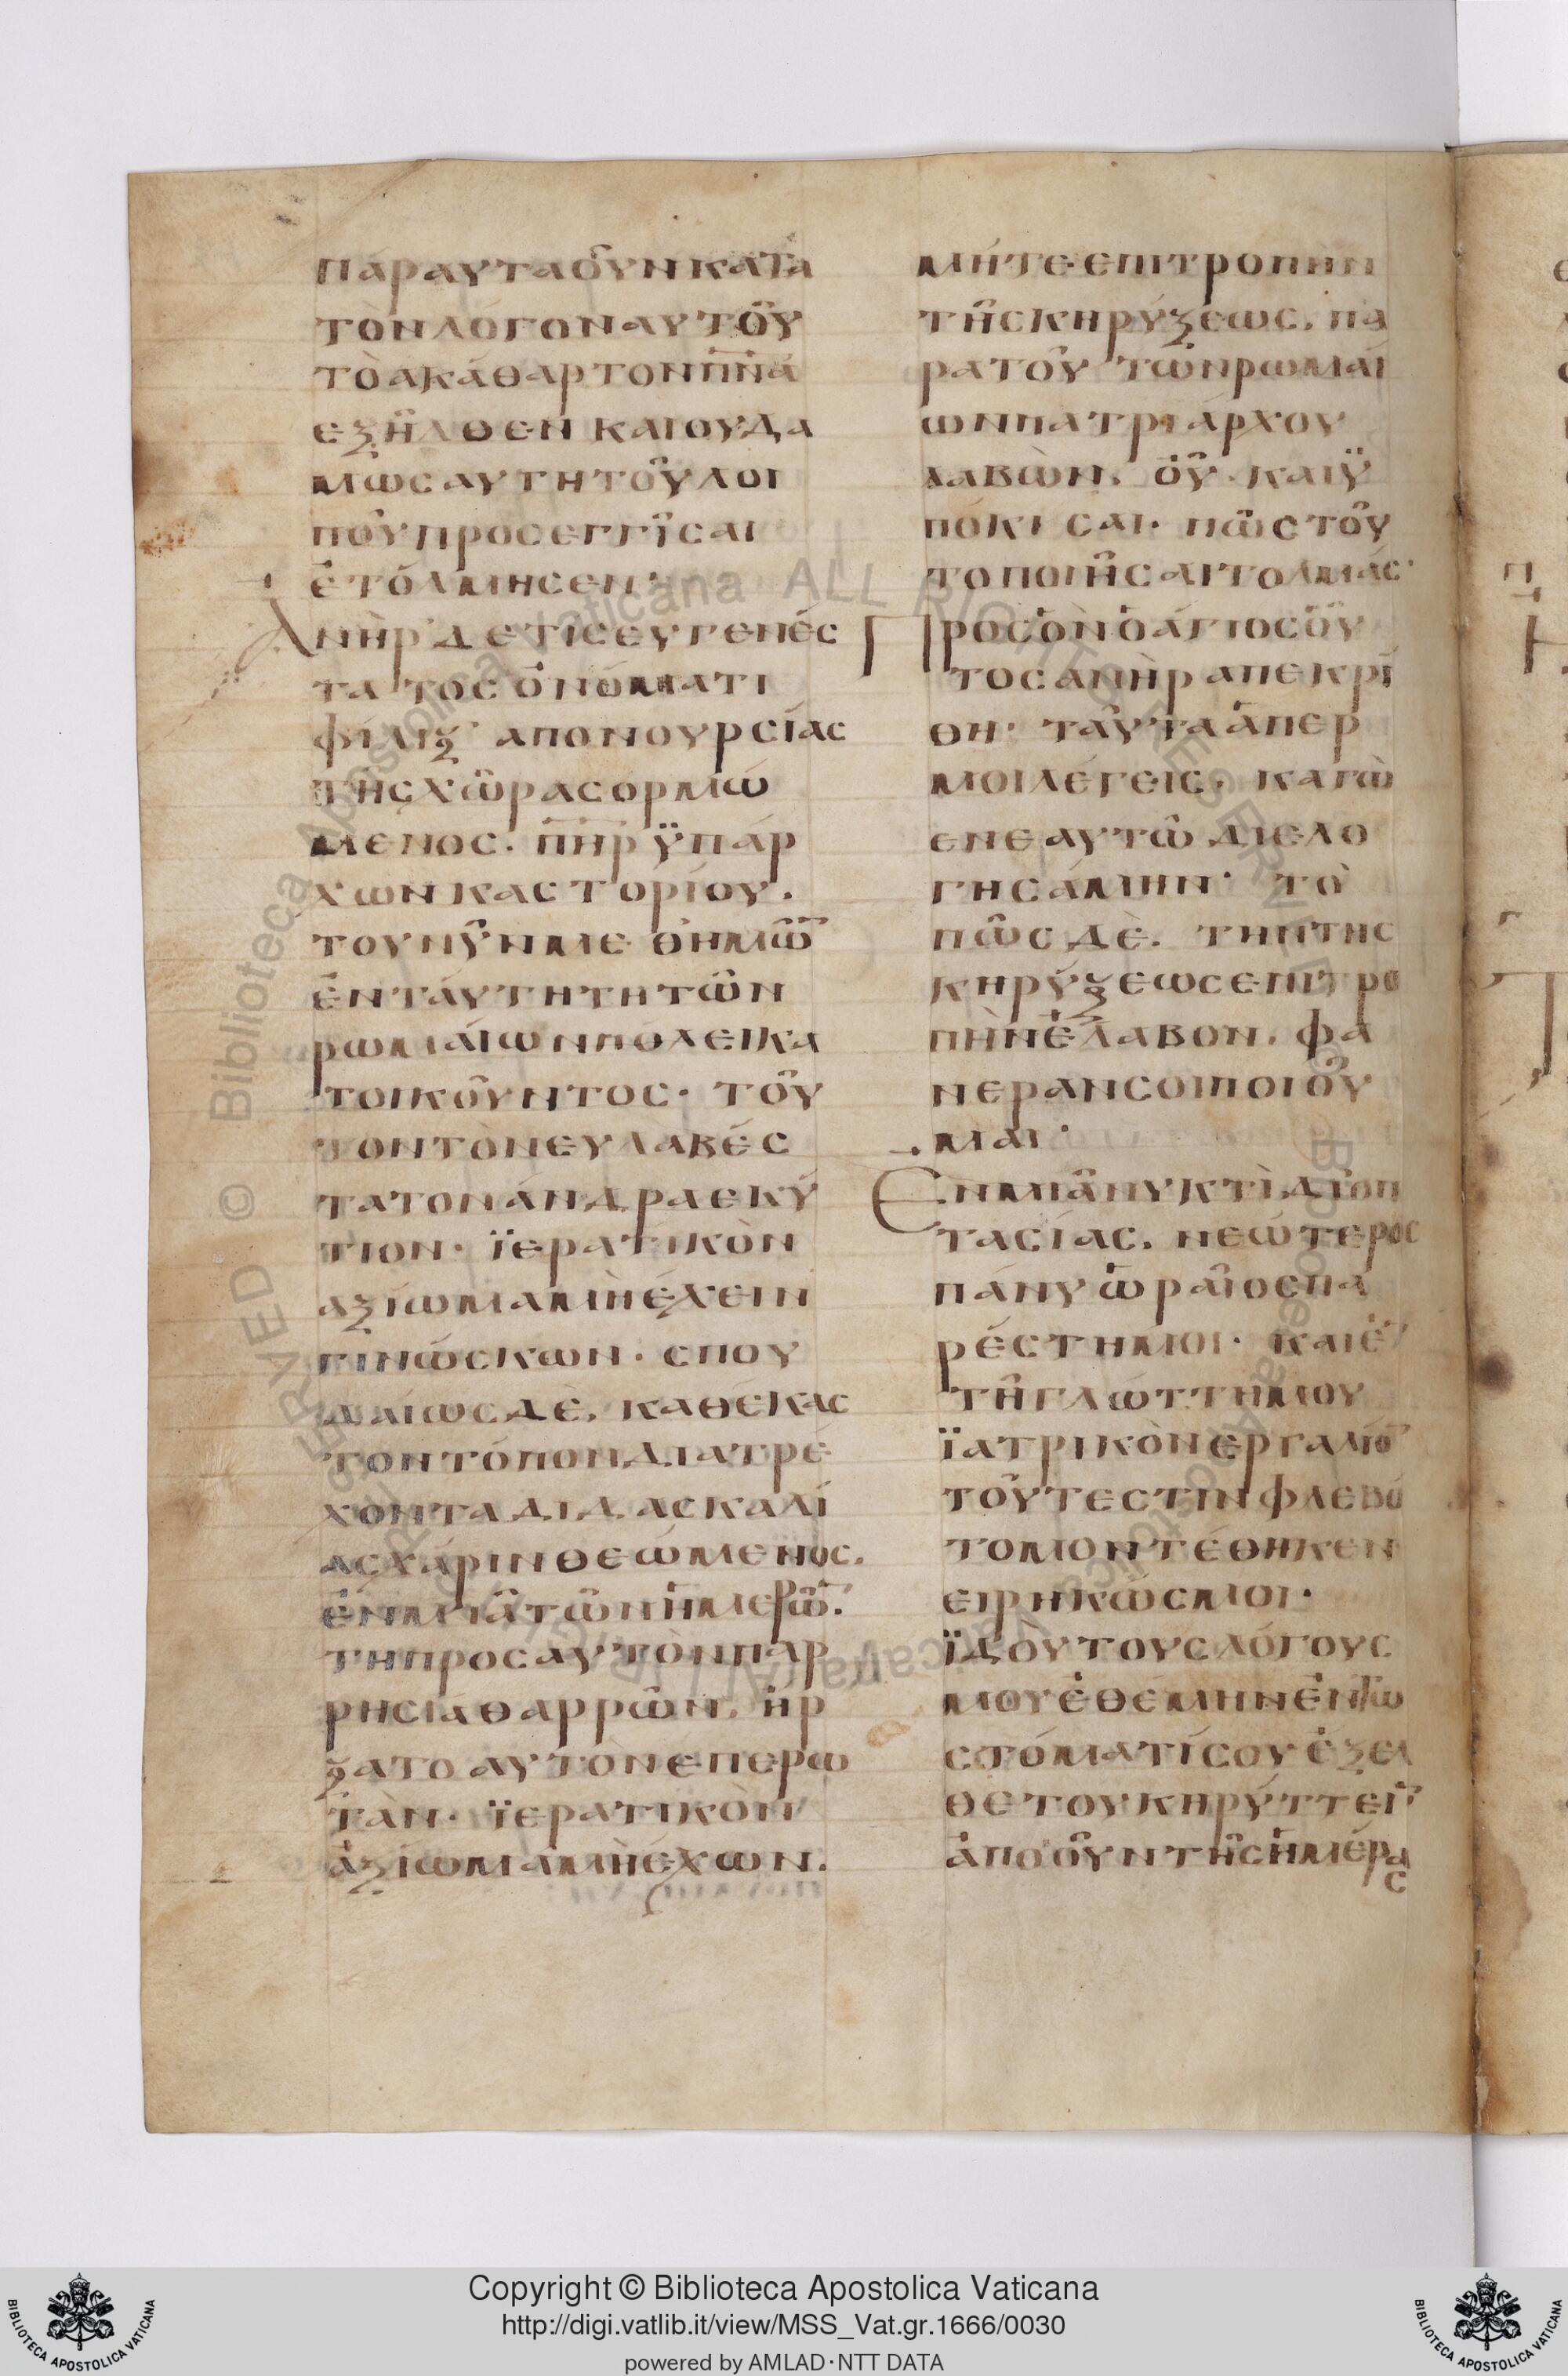 ΠΆΡΑΥΤΑΟΥ͂ΝΚΑΤᾺ
ΤῸΝΛΌΓΟΝΑΥΤΟΥ͂
ΤῸΑΚΆΘΑΡΤΟΝΠ̅Ν̅Α̅
ΕΞΗ͂ΛΘΕΝΚΑΙΟΥΔΑ
ΜΩ͂ΣΑΥΤΗΤΟΥ͂ΛΟΙ
ΠΟΥ͂ΠΡΟΣΕΓΓΊΣΑΙ
ἘΤΌΛΜΗΣΕΝ·
ΑΝῊΡΔΕΤΙΣΕΥΓΕΝΈΣ
ΤΑΤΟΣὈΝΌΜΑΤΙ
ΦΊΛΙΞΑΠΟΝΟΥΡΣΊΑΣ
ΤΗ͂ΣΧΏΡΑΣΟΡΜΏ
ΜΕΝΟΣ. Π̅Η̅Ρ̅ Ϋ̔ΠΆΡ
ΧΩΝΚΑΣΤΟΡΊΟΥ.
ΤΟΥΝΥ͂ΝΜΕΘἩΜΩ͂̅
ἘΝΤΑΎΤΗΤΗΤΩ͂Ν
ΡΩΜΑΊΩΝΠΟΛΕΙΚΑ
ΤΟΙΚΟΥ͂ΝΤΟΣ· ΤΟΥ͂
ΤΟΝΤῸΝΕΥΛΑΒΈΣ
ΤΑΤΟΝΆΝΔΡΑΕΚΎ
ΤΙΟΝ· ΪΕΡΑΤΙΚῸΝ
ΑΞΊΩΜΑΜῊΈΧΕΙΝ
ΓΙΝΏΣΚΩΝ· ΣΠΟΥ
ΔΑΊΩΣΔῈ, ΚΑΘΈΚΑΣ
ΤΟΝΤΌΠΟΝΔΙΑΤΡΈ
ΧΟΝΤΑΔΙΔΑΣΚΑΛΊ
ΑΣΧΆΡΙΝΘΕΏΜΕΝΟΣ.
ἘΝΜΙΑ͂ΤΩ͂ΝἩΜΕΡΩ͂̅.
ΤΗΠΡΟΣΑΥΤῸΝΠΑΡ
ΡΗΣΊΑΘΑΡΡΩ͂Ν, ΉΡ
ΞΑΤΟΑΥΤῸΝΕΠΕΡΩ
ΤᾺΝ· ΪΕΡΑΤΙΚῸΝ
ἈΞΊΩΜΑΜῊΈΧΩΝ.
ΜΉΤΕΕΠΙΤΡΟΠῊΝ
ΤΗ͂ΣΚΗΡΎΞΕΩΣ, ΠΑ
ΡΑΤΟΥ͂ΤΩ͂ΝΡΩΜΑΊ
ΩΝΠΑΤΡΙΆΡΧΟΥ
ΛΑΒῺΝ. ΟΥ͂ΚΑΙΫ̔
ΠΌΚΙΣΑΙ· ΠΩ͂ΣΤΟΥ͂
ΤΟΠΟΙΗ͂ΣΑΙΤΟΛΜΆΣ·
ΠΡΟΣὉΝὉΆΓΙΟΣΟΥ͂
ΤΟΣΑΝῊΡΑΠΕΚΡΊ
ΘΗ· ΤΑΥ͂ΤΑἍΠΕΡ
ΜΟΙΛΈΓΕΙΣ, ΚΑΓῺ
ΕΝΕΑΥΤΩ͂ΔΙΕΛΟ
ΓΗΣΆΜΗΝ· ΤῸ
ΠΩ͂ΣΔῈ. ΤΗΝΤΗΣ
ΚΗΡΎΞΕΩΣΕΠΙΤΡΟ
ΠῊΝἜΛΑΒΟΝ. ΦΑ
ΝΕΡΑΝΣΟΙΠΟΙΟΥ͂
ΜΑΙ·
ΕΝΜΙΑ͂ΝΥΚΤῚΔΙΟΠ
ΤΑΣΊΑΣ. ΝΕΏΤΕΡΟΣ
ΠΆΝΥὩΡΑΙ͂ΟΣΠΑ
ΡΈΣΤΗΜΟΙ· ΚΑΙἘ̅
ΤΗ͂ΓΛΏΤΤΗΜΟΥ
ΪΑΤΡΙΚῸΝΕΡΓΑΛΙΟ̅
ΤΟΥ͂ΤΕΣΤΙΝΦΛΕΒΟ
ΤΟΜΟΝΤΈΘΗΚΕΝ
ΕΙΡΗΚΏΣΜΟΙ·
ΪΔΟῪΤΟΥΣΛΌΓΟΥΣ
ΜΟΥἘΘΈΜΗΝἘΝΤΩ
ΣΤΌΜΑΤΊΣΟΥἘΞΕΛ
ΘΕΤΟΥΚΗΡΎΤΤΕΙ̅
ἈΠΟΟΥ͂ΝΤΗ͂ΣἩΜΈΡΑ
Σ
Copyright © Biblioteca Apostolica Vaticana
http://digi.vatlib.it/view/MSS_Vat.gr.1666/0030
powered by AMLAD·NTT DATA